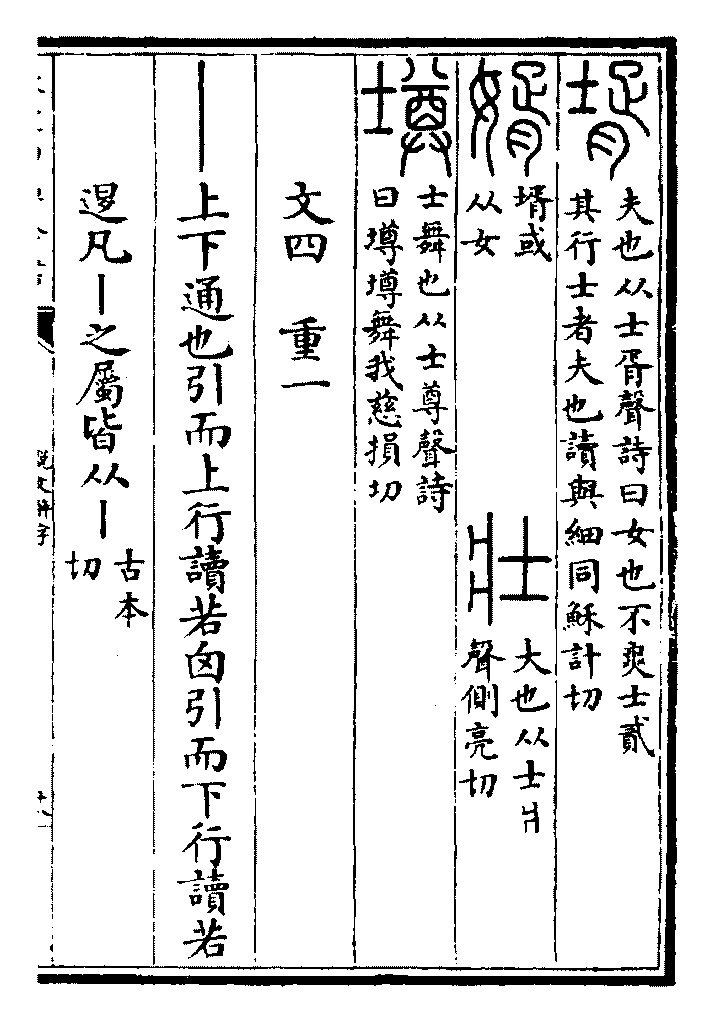 壻
夫也从士胥聲詩曰女也不爽士貳
其行士者夫也讀與細同穌計切
婿
壻或
从女
壯
大也从士爿
聲側亮切
壿
士舞也从士尊聲詩
曰壿壿舞我慈損切
文四 重一
丨 上下通也引而上行讀若囟引而下行讀若
𨓤凡丨之屬皆从丨
古本
切
説文解字